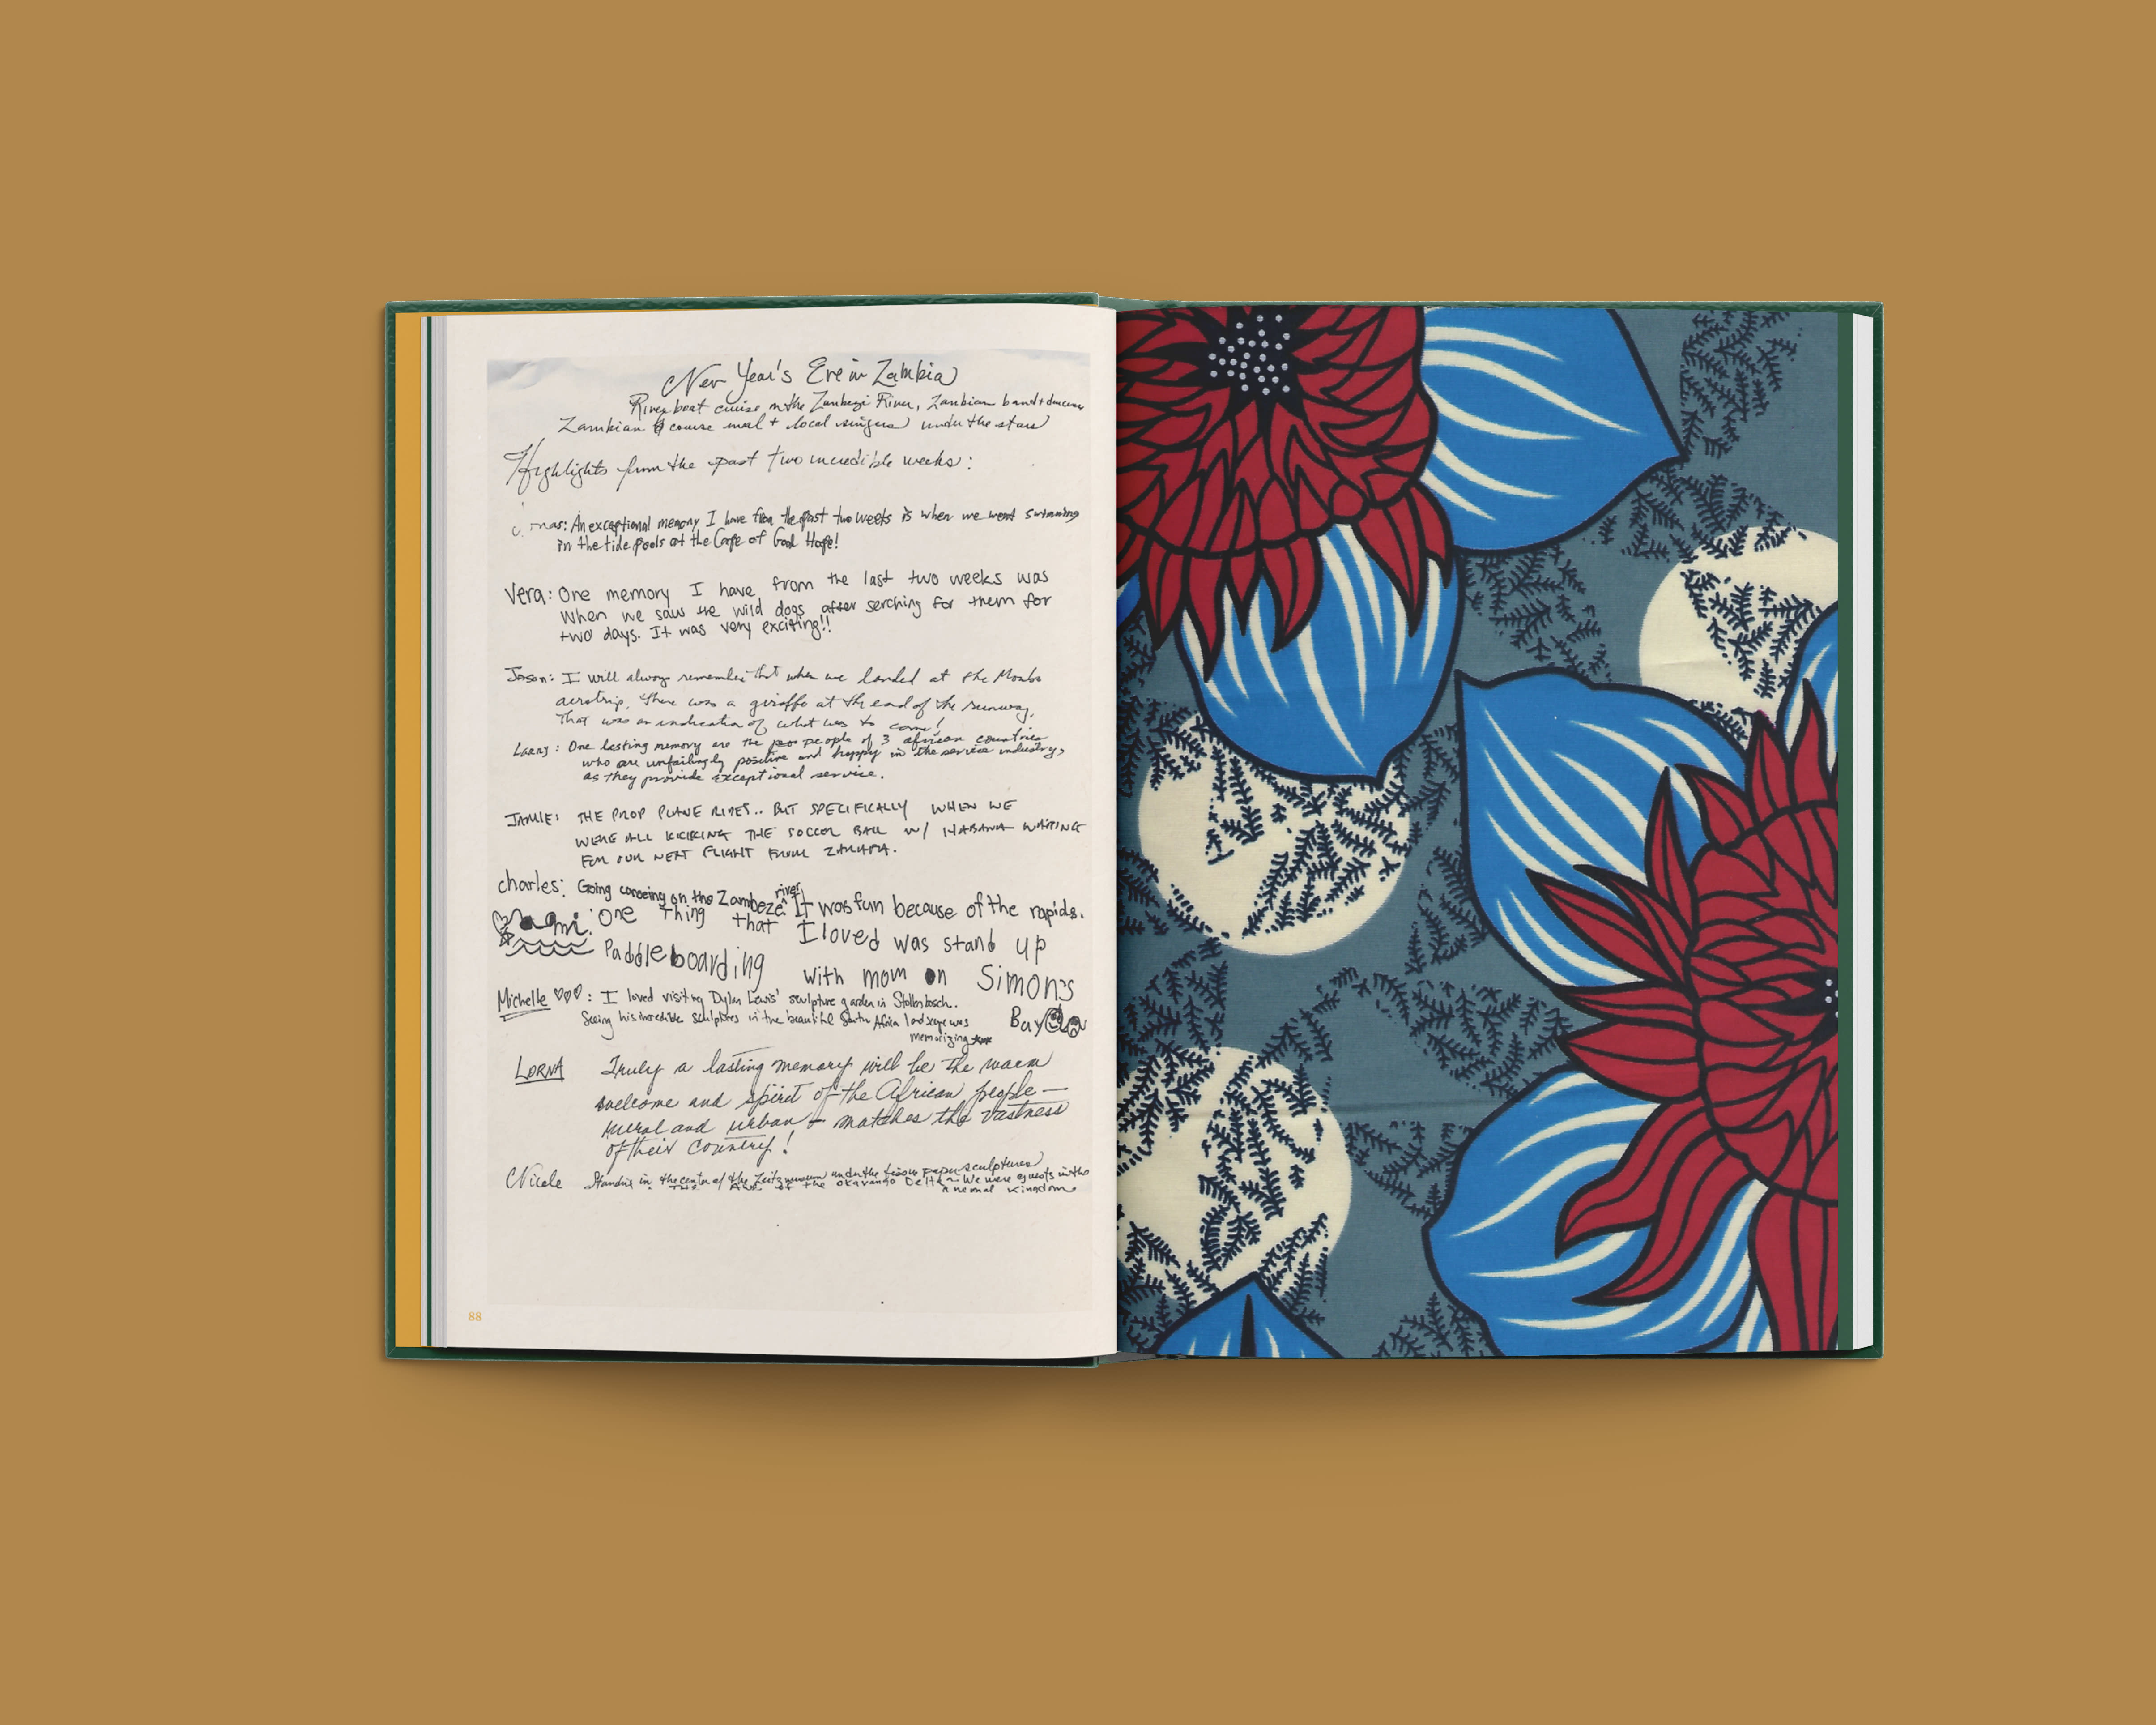 New Year's Eve in Zambia
River boat cruise on the Zambezi River, Zambian band + dancers
Zambian 4 course meal + local singers under the stars
Highlights from the past two incredible weeks:
An exceptional memory I have from the past two weeks is when we went swimming
in the tide pools at the Cape of Good Hope!
Vera: One memory I have from the last two weeks was
When we saw the wild dogs after serching for them for
two days. It was very exciting!!
Jason: I will always remember that when we landed at the Mombo
airstrip, there was a giraffe at the end of the runway.
That was an indication of what was to come!
Larry: One lasting memory are the people of 3 african countries
who are unfailingly positive and happy in the service industry,
as they provide exceptional service.
JAMIE: THE PROP PLANE RIDES.. BUT SPECIFICALLY WHEN WE
WERE ALL KICKING THE SOCCER BALL W/ WAITING
FOR OUR NEXT FLIGHT FROM
charles: Going canoeing on the Zambeze river. It was fun because of the rapids.
One thing that I loved was stand up
Paddleboarding with mom on Simon's
Bay
Michelle ♡♡♡: I loved visiting Dylan Lewis' sculpture garden in Stellenbosch.
Seeing his incredible sculptures in the beautiful South Africa landscape was
memorizing
LORNA Truly a lasting memory will be the warm
welcome and spirit of the African people —
rural and urban — matches the vastness
of their country!
Nicole Standing in the center of the Zeitz museum under the tissue paper sculptures
of the Okavango Delta ~ We were guests in the
Kingdom
88